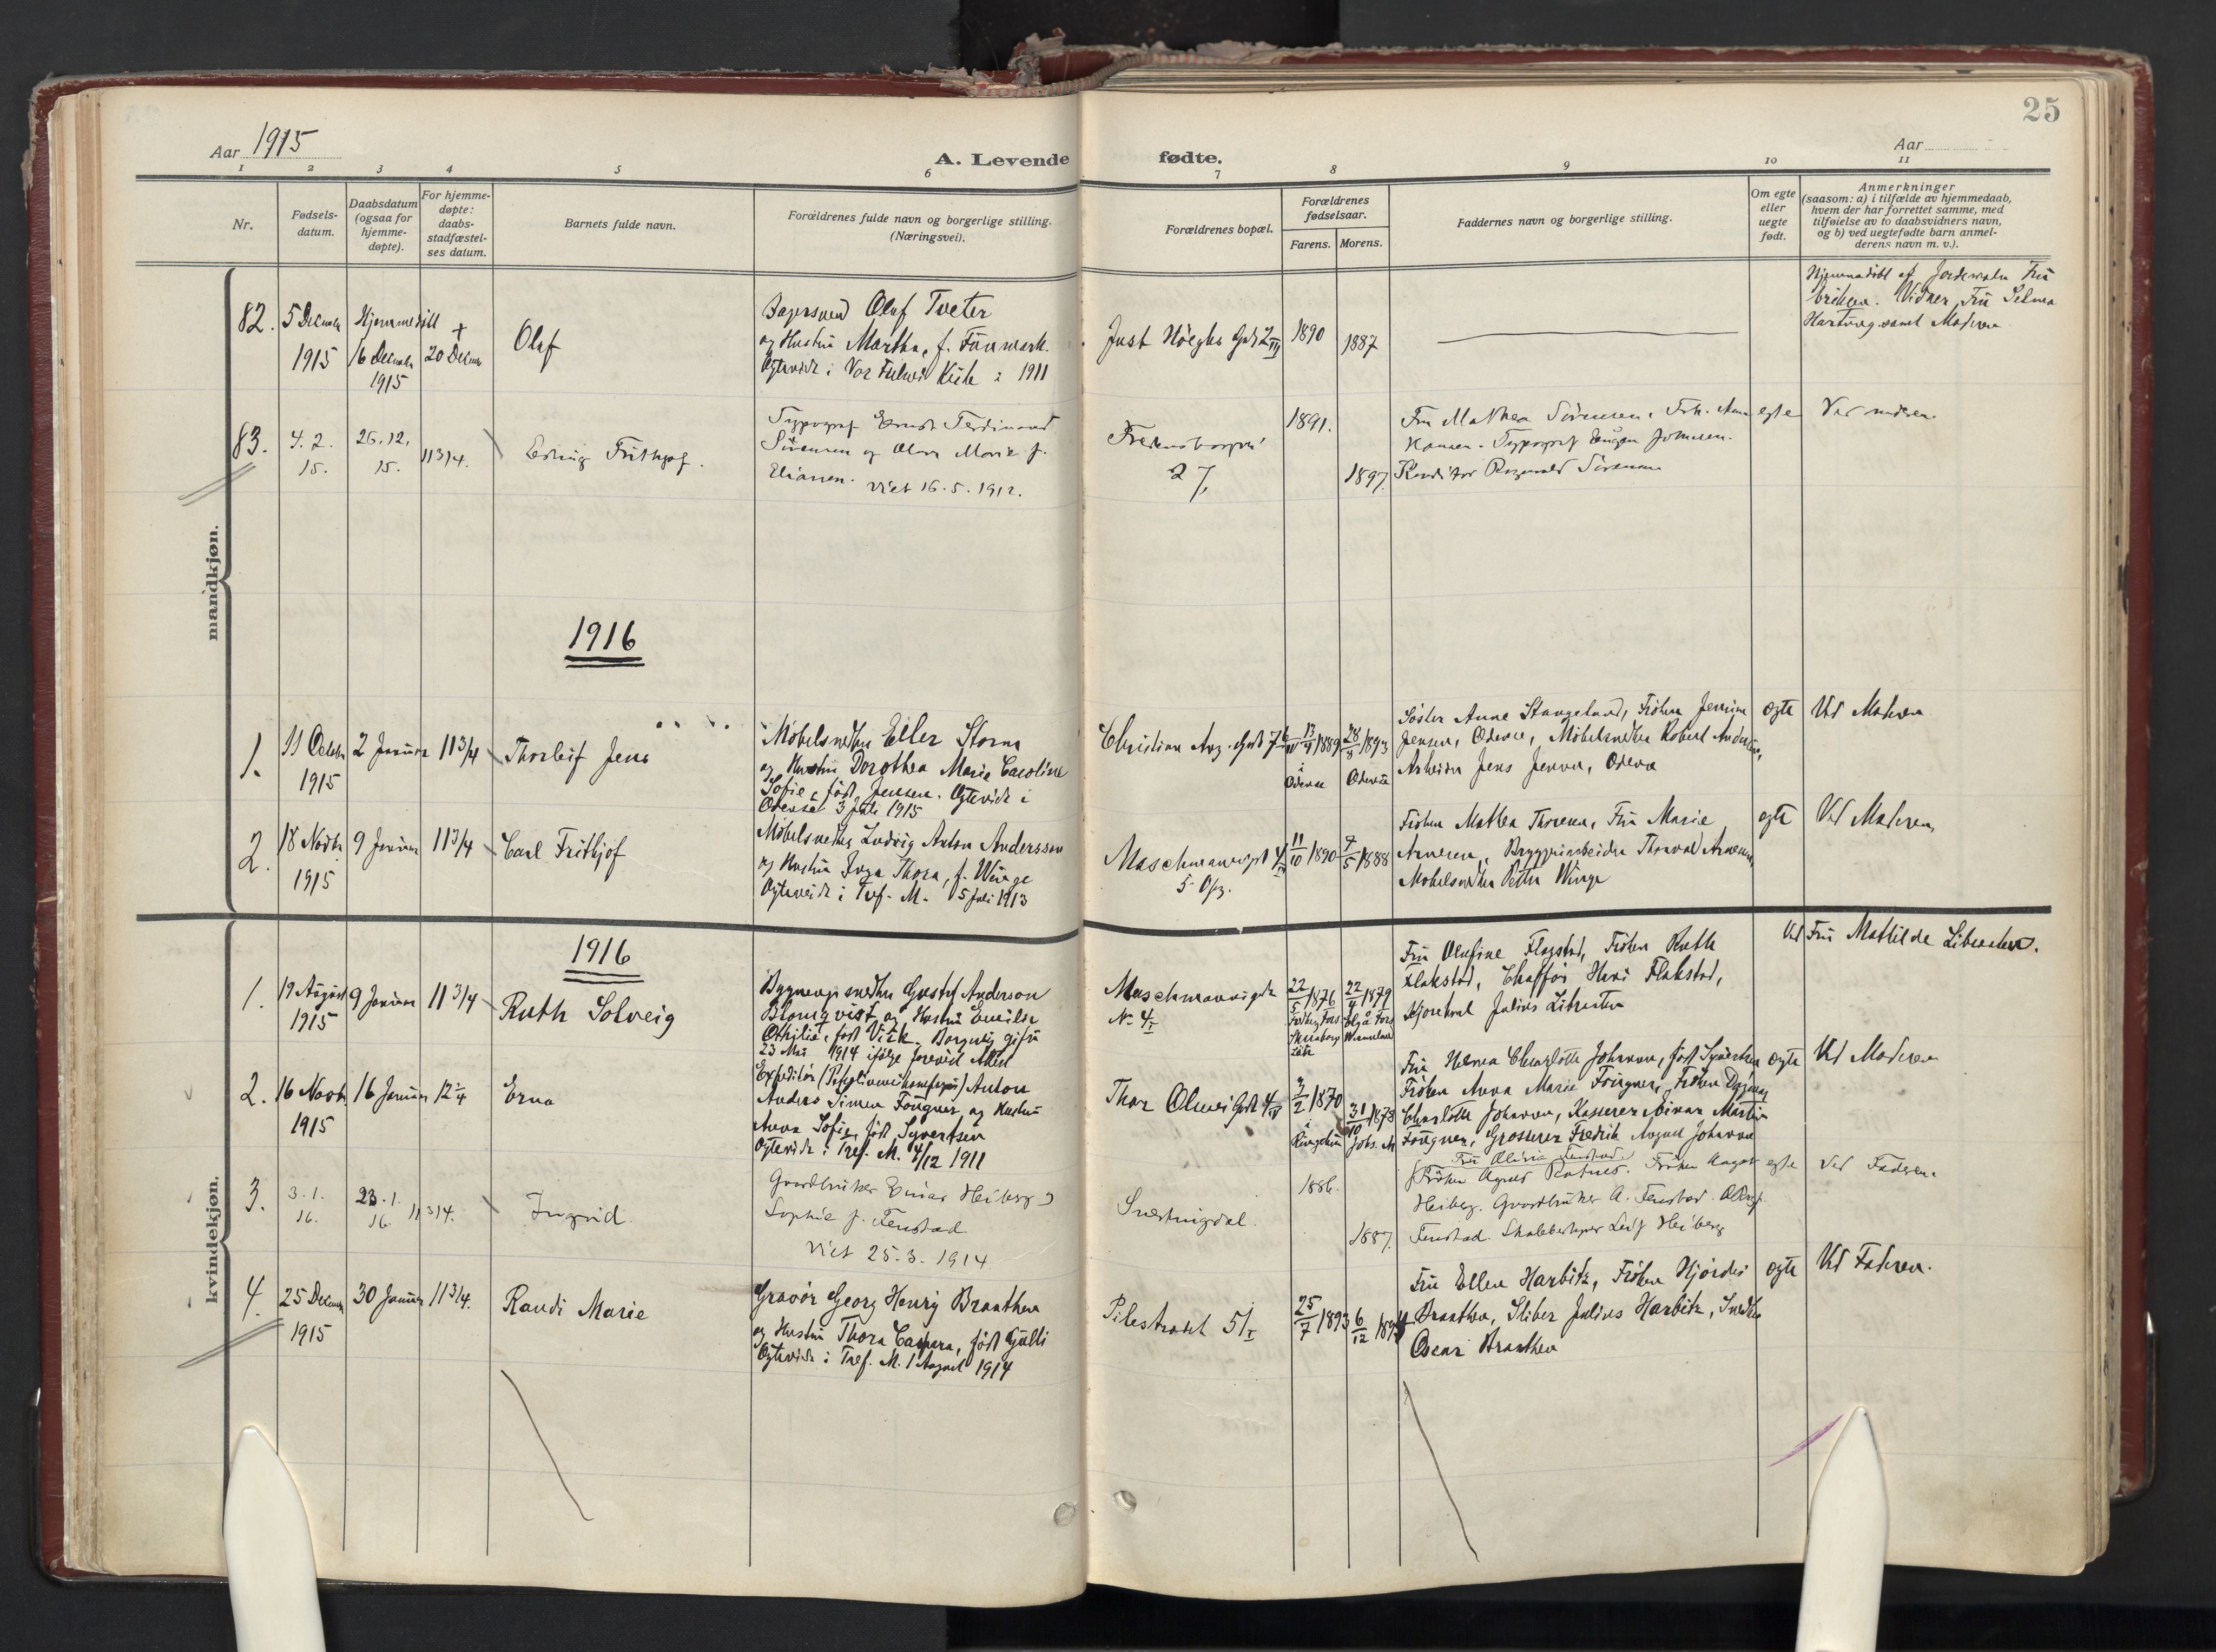 25
Aar 1915
A. Levende
fødte.
Aar
1 2 3 4 5 6 7 8 9 10 11
Nr.
Fødsels-
datum.
Daabsdatum
(ogsaa for
hjemme-
døpte).
For hjemme-
døpte:
daabs-
stadfæstel-
ses datum.
Barnets fulde navn.
Forældrenes fulde navn og borgerlige stilling.
(Næringsvei).
Forældrenes bopæl.
Forældrenes
fødselsaar.
Farens. Morens.
Faddernes navn og borgerlige stilling.
Om egte
eller
uegte
født.
Anmerkninger
(saasom: a) i tilfælde av hjemmedaab,
hvem der har forrettet samme, med
tilføielse av to daabsvidners navn,
og b) ved uegtefødte barn anmel-
derens navn m. v.).
mandkjøn.
82.
5 Decemb
1915
Hjemmedøbt
16 Decemb
1915
20 Decemb
Olaf
Olaf Tveter
og Hustru Martha, f.
Ægteviet i Vor Frelsers Kirke i 1911
Just Høeghs Gd. 2 III
1890
1887
Hjemmedøbt af Jordemoder Fru
Eriksen. Vidner Fru Selma
Hartvig samt Moderen
83.
4. 2.
15.
26. 12.
15.
11 3/4.
Frithjof.
Typograf Ernst Ferdinand
Sørensen og Olava Marie f.
Eliassen. viet 16. 5. 1912.
Fredensborgvei
27
1891.
1897.
Fru Mathea Sørensen. Frk. Anna
Hansen. Typograf Eugen Johnsen.
Konditor Ragnvald Sørensen
egte
Ved moderen.
1916
1.
11 Octob
1915
2 Januar
11 3/4
Thorleif Jens
Møbelsnedker Eller Storm
og Hustru Dorothea Marie Caroline
Sofie, født Jensen. Ægteviet i
Odense 3 Juli 1915
Christian Aug. Gade 7
13/4 1889
i
Odense
28/8 1893
Odense
Søster Anne Stangeland, Frøken Jensine
Jensen, Odense, Møbelsnedker Robert Andersen,
Arbeider Jens Jensen, Odense
egte
Ved Moderen
2.
18 Novbr
1915
9 Januar
11 3/4
Carl Frithjof
Møbelsnedker Ludvig Anton Andersson
og Hustru Inga Thora, f. Winge
Ægteviet i Tref. M. 5 Juli 1913
Maschmannsgd 4
5 Opg.
11/10 1890
7/5 1888
Frøken Mathea Thoresen, Fru Marie
Arnesen, Bryggeriarbeider Thorvald Arnesen,
Møbelsnedker Petter Winge
egte
Ved Moderen
kvindekjøn.
1916
1.
19 August
1915
9 Januar
11 3/4
Ruth Solveig
Bygningssnedker Gustaf Anderson
Blomqvist og Hustru Emilie
Othilie, født Vizk. Borgerlig gift
23 Mai 1914 ifølge forevist Attest
Maschmannsgade
No 4 I
22/5 1876
22/4 1879
Fru Olufine Flagstad, Frøken Ruth
Flakstad, Chaffør Hans Flakstad,
Hjorehval Julius Libuchen
Ved Fru Mathilde Libuchen.
2.
16 Novb
1915
16 Januar
12 1/4
Erna
Expeditør Anton
Anders Simen Fougner og Hustru
Anna Sofie, født Syvertsen
Ægteviet i Tref. M. 4/12 1911
Thor Olsens Gade 4 IV
3/2 1870
i
Ringebu
31/10 1873
Johs. M
Fru Helena Charlotte Johnson, født Syvertsen
Frøken Anna Marie Fougner, Frøken Dagny
Charlotte Johnson, Kasserer Einar Martin
Fougner, Grosserer Fredrik August Johnson
egte
Ved Moderen
3.
3. 1.
16.
23. 1.
16.
11 3/4.
Ingrid
Gaardbruker Einar Heiberg og
Sophie f. Fenstad.
viet 25. 3. 1914
Sværtingdal.
1886.
1887.
Fru Olivia Fenstad.
Frøken Agnes Ratnes. Frøken Aagot
Heiberg. Gaardbruker A. Fenstad.
Fenstad. Skolebestyrer Leif Heiberg
egte
Ved Faderen.
4.
25 Decemb
1915
30 Januar
11 3/4.
Randi Marie
Gravør Georg Henry Braathen
og Hustru Thora Caspara, født Gulli
Ægteviet i Tref. M. 1 August 1914
Pilestrædet 51 I
25/7 1893
6/12 1894
Fru Ellen Harbitz, Frøken Hjørdis
Braathen, Sliber Julius Harbitz, Snedker
Oscar Braathen
egte
Ved Faderen.